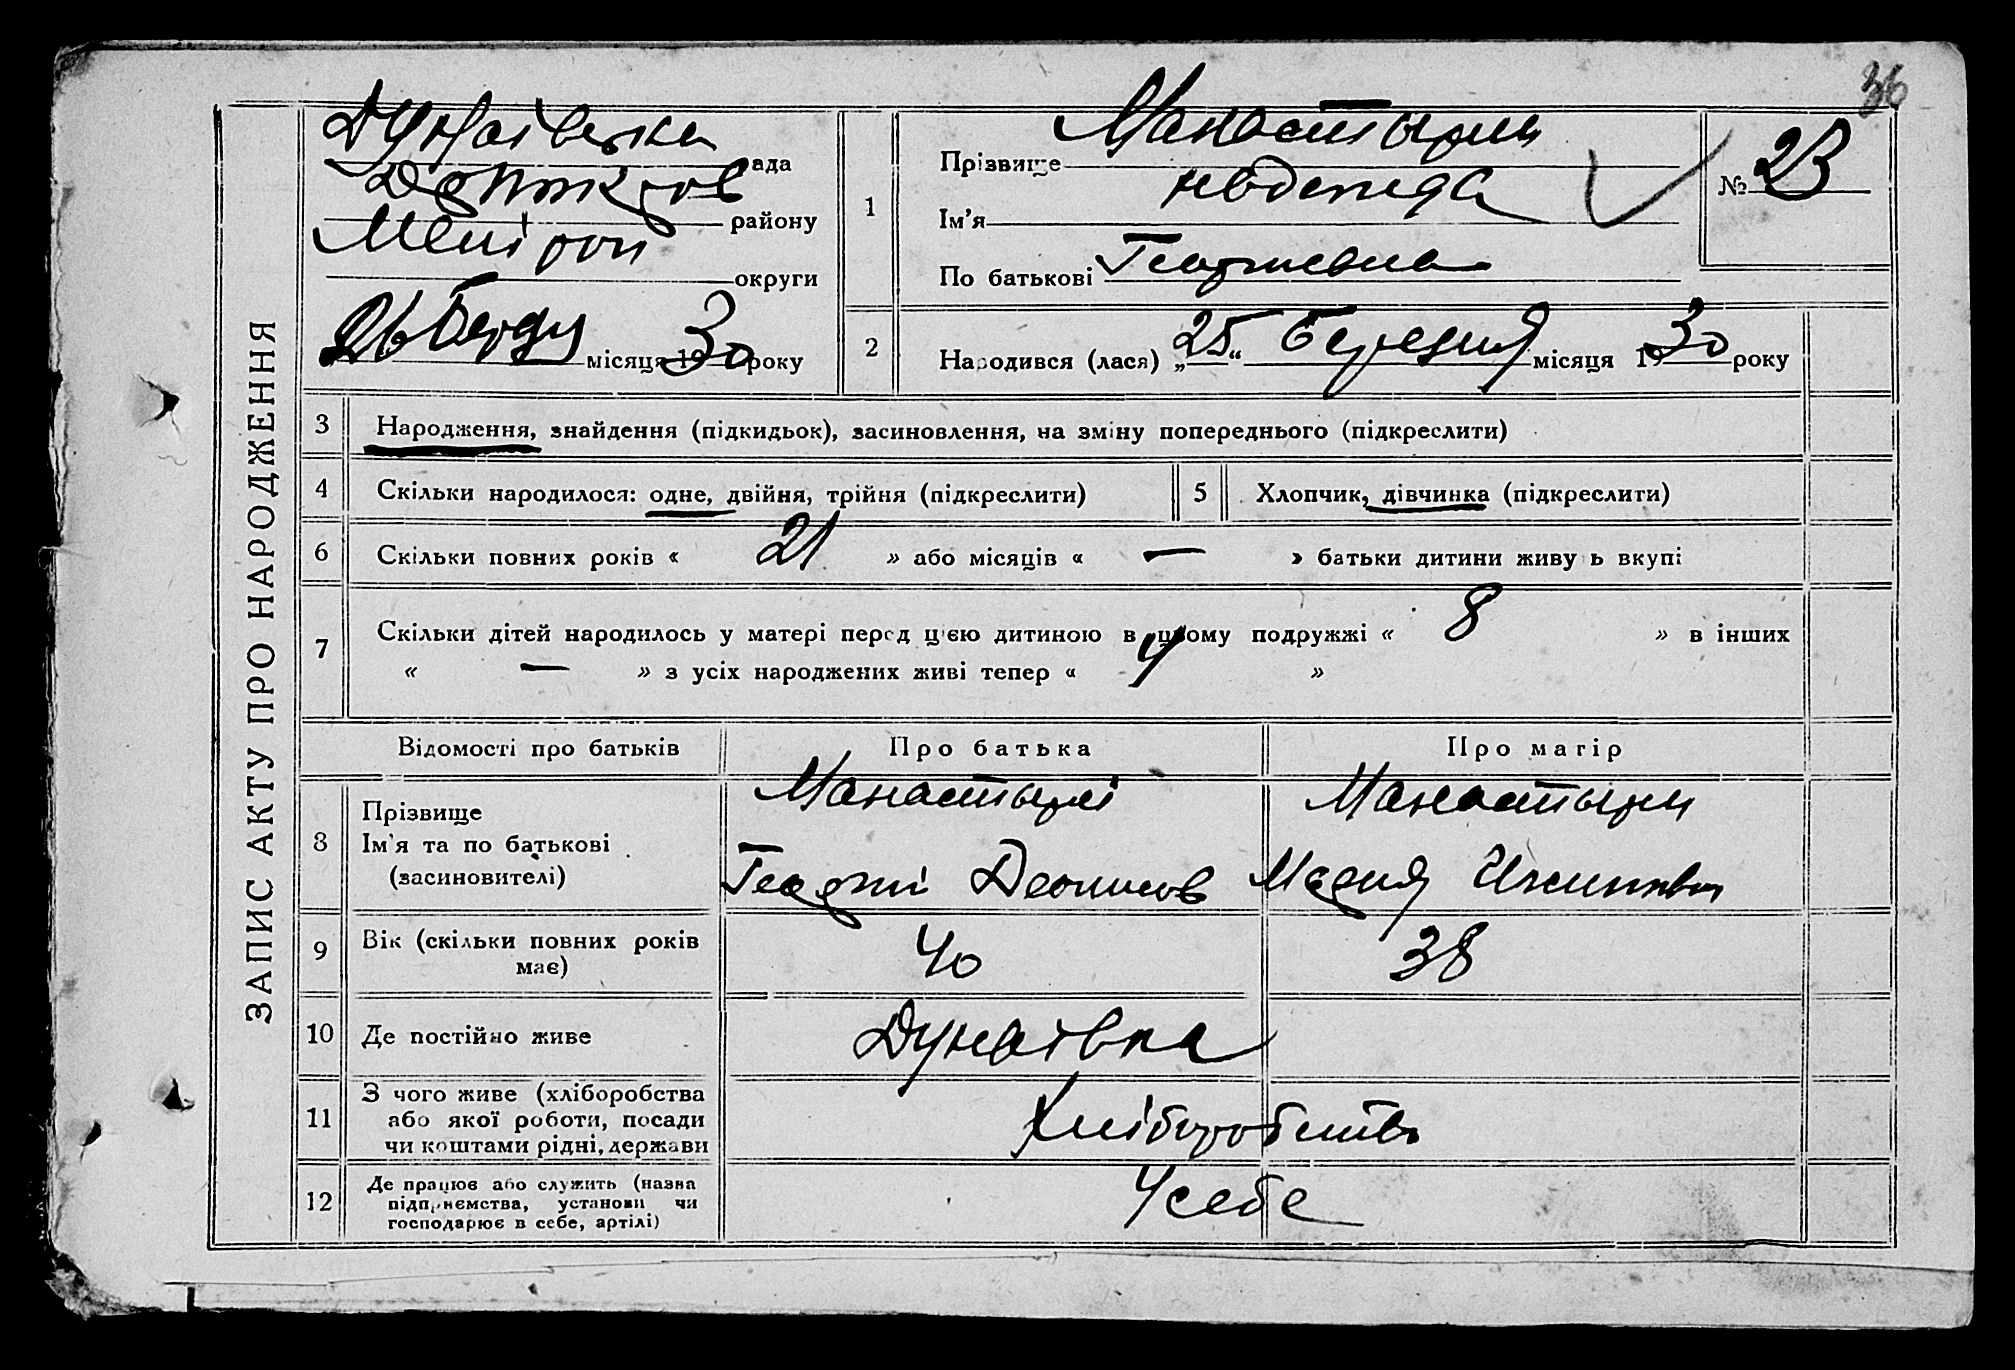 36
ЗАПИС АКТУ ПРО НАРОДЖЕННЯ
Дунаївська рада
району
Меліроп округи
26 Берез місяця 1930 року
1
Прізвище Манастырли
Ім'я Надежда
По батькові Георгиевна
№ 23
2
Народився (лася) „25“ Березня місяця 1930 року
3
Народження, знайдення (підкидьок), засиновлення, на зміну попереднього (підкреслити)
4
Скільки народилося: одне, двійня, трійня (підкреслити)
5
Хлопчик, дівчинка (підкреслити)
6
Скільки повних років « 21 » або місяців « — » батьки дитини живуть вкупі
7
Скільки дітей народилось у матері перед цією дитиною в цьому подружжі « 8 » в інших
« — » з усіх народжених живі тепер « 4 »
Відомості про батьків
Про батька
Про матір
8
Прізвище
Ім'я та по батькові
(засиновителі)
Манастырлі
Георгі Деонисов
Манастырли
Мария
9
Вік (скільки повних років
має)
40
38
10
Де постійно живе
Дунаівка
11
З чого живе (хліборобства
або якої роботи, посади
чи коштами рідні, держави
Хліборобство
12
Де працює або служить (назва
підприємства, установи чи
господарює в себе, артілі)
У себе